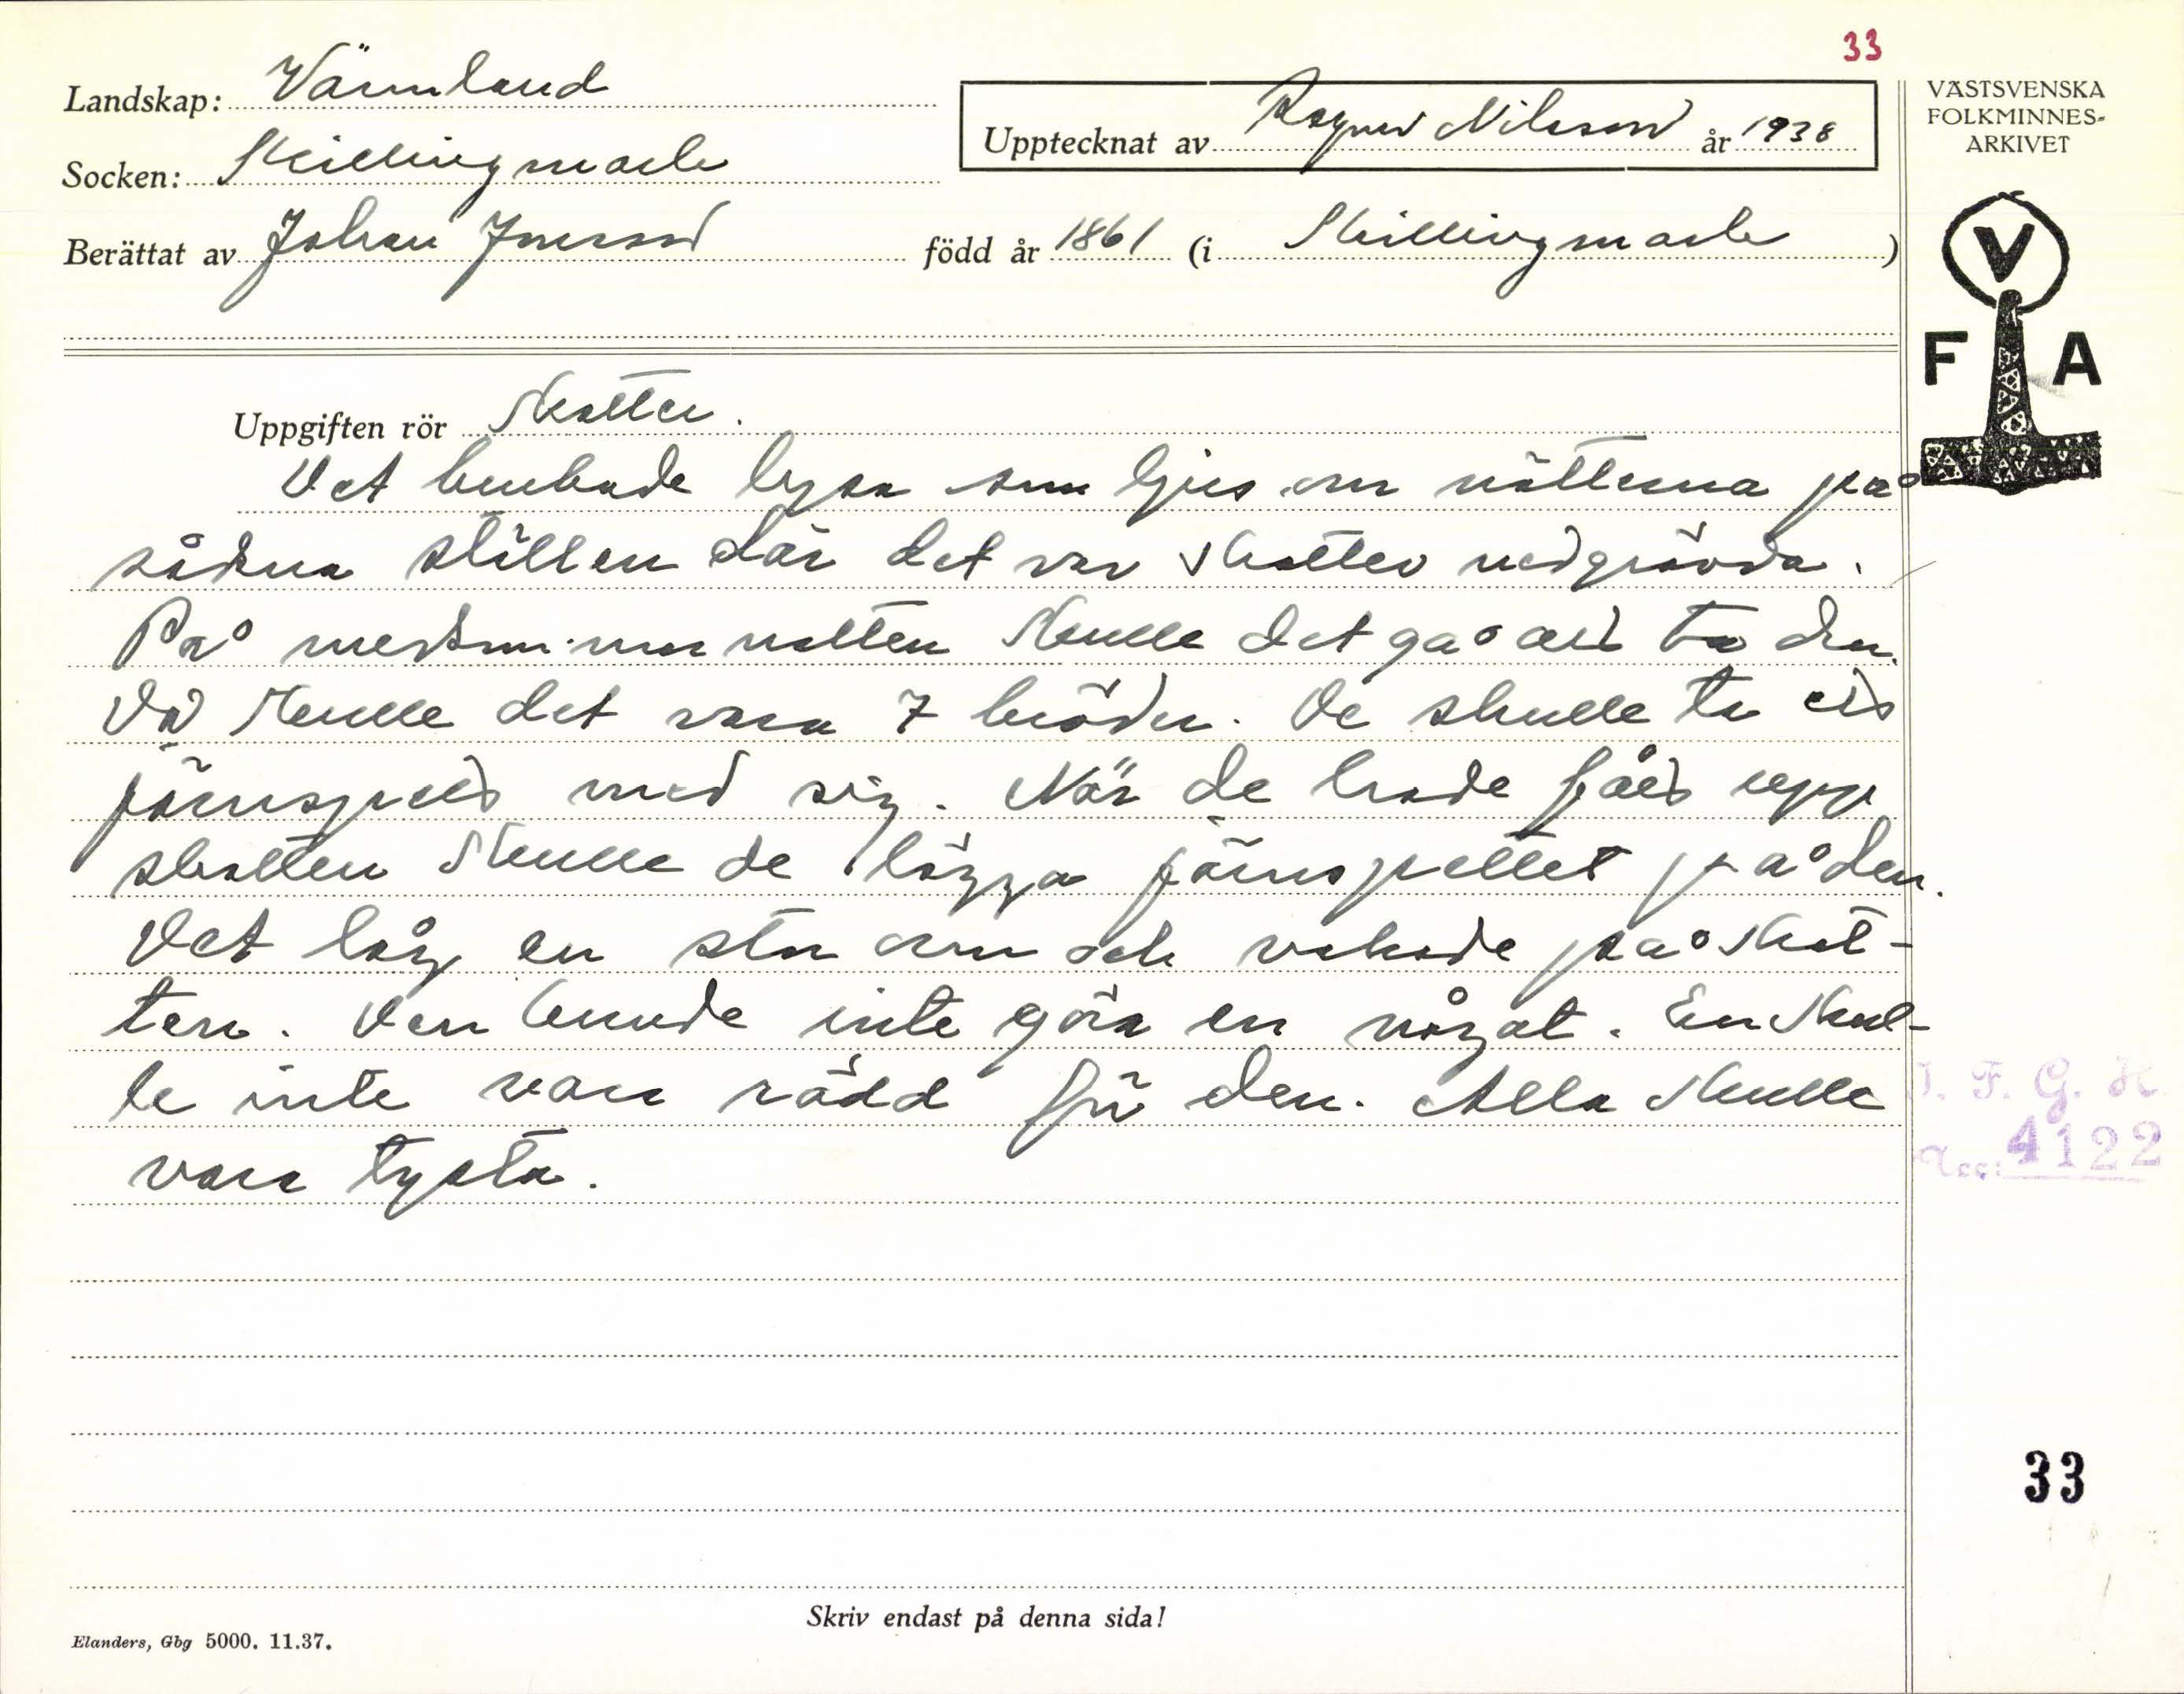 33
Landskap: Värmland
Upptecknat av Ragnar Nilsson år 1938
VÄSTSVENSKA
FOLKMINNES-
ARKIVET
Socken: Skillingmark
Berättat av Johan född år 1861 (i Skillingmark)
V
F A
Uppgiften rör Skatter.
Det brukade lysa som ljus om nätterna på
sådna ställen där det var skatter nedgrävda.
På midsommarnatten skulle det gå att ta den.
Då skulle det vara 7 bröder. De skulle ta ett
järnspett med sig. När de hade fått upp
skatten skulle de lägga järnspettet på den.
Det låg en stor orm och vakade på skat-
ten. Den kunde inte göra en något. En skul-
le inte vara rädd för den. Alla skulle
vara tysta.
I. F. G. H.
Acc: 4122
33
Skriv endast på denna sida!
Elanders, Gbg 5000. 11.37.